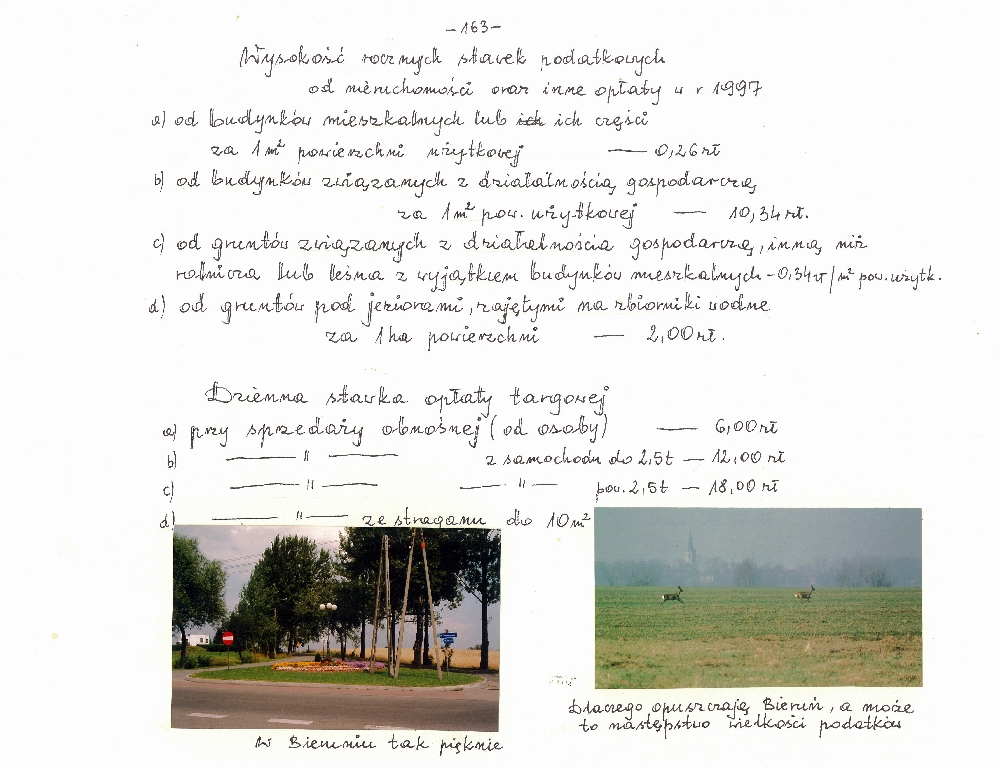 -163-
Wysokość rocznych stawek podatkowych
od nieruchomości oraz inne opłaty w r 1997
a) od budynków mieszkalnych lub ich ich części
za 1m² powierzchni użytkowej — 0,26 zł
b) od budynków związanych z działalnością gospodarczą
za 1m² pow. użytkowej — 10,34 zł.
c) od gruntów związanych z działalnościa gospodarczą, inną niż
rolnicza lub leśna z wyjątkiem budynków mieszkalnych - 0,34 zł/m² pow. użytk.
d) od gruntów pod jeziorami, zajętymi na zbiorniki wodne
za 1ha powierzchni — 2,00 zł.
Dzienna stawka opłaty targowej
a) przy sprzedaży obnośnej (od osoby) — 6,00 zł
b) — " — z samochodu do 2,5t — 12,00 zł
c) — " — — " — pow. 2,5t — 18,00 zł
d) — " — ze straganu do 10m²
W Bieruniu tak pięknie
Dlaczego opuszczają Bieruń, a może
to następstwo wielkości podatków